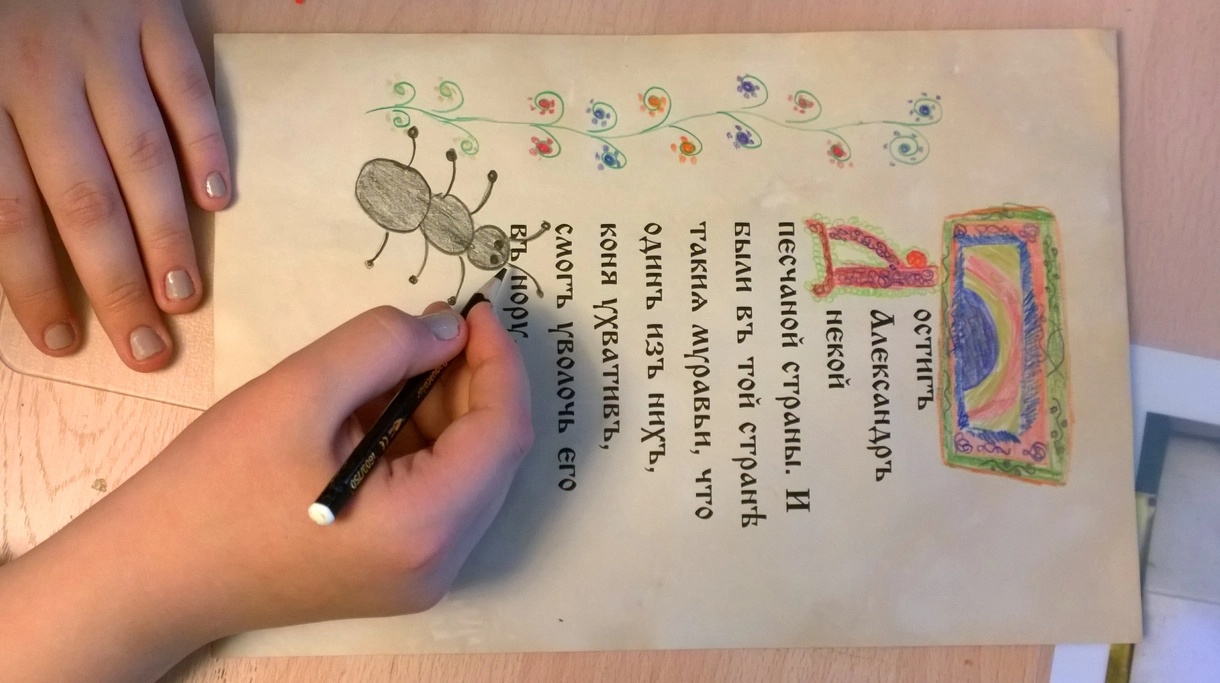 Достигъ
Александръ
некой
песчаной страны. И
были въ той странѣ
такиѧ муравьи, что
одинъ изъ нихъ,
коня ухвативъ,
смогъ уволочь его
въ нору